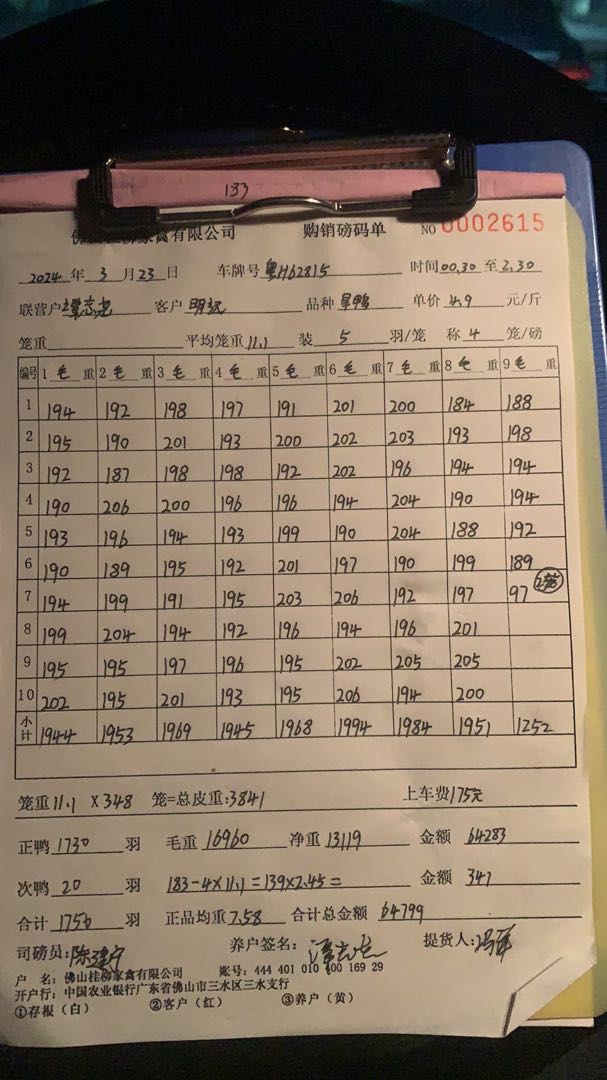 133
佛山桂柳家禽有限公司 购销磅码单 NO 0002615
2024 年 3 月 23 日 车牌号 粤H62815 时间 00.30 至 2.30
联营户 谭志尧 客户 明记 品种 旱鸭 单价 4.9 元/斤
笼重 平均笼重 11.1 装 5 羽/笼 称 4 笼/磅
编号 1 毛 重 2 毛 重 3 毛 重 4 毛 重 5 毛 重 6 毛 重 7 毛 重 8 毛 重 9 毛 重
1 194 192 198 197 191 201 200 184 188
2 195 190 201 193 200 202 203 193 198
3 192 187 198 198 192 202 196 194 194
4 190 206 200 196 196 194 204 190 194
5 193 196 194 193 199 190 204 188 192
6 190 189 195 192 201 197 190 199 189
7 194 199 191 195 203 206 192 197 97 2笼
8 199 204 194 192 196 194 196 201
9 195 195 197 196 195 202 205 205
10 202 195 201 193 195 206 194 200
小计 1944 1953 1969 1945 1968 1994 1984 1951 1252
笼重 11.1 X 348 笼=总皮重: 3841 上车费 175元
正鸭 1730 羽 毛重 16960 净重 13119 金额 64283
次鸭 20 羽 183-4×11.1=139×2.45= 金额 341
合计 1750 羽 正品均重 7.58 合计总金额 64799
司磅员: 陈建宁 养户签名: 提货人:
户 名: 佛山桂柳家禽有限公司 账号: 444 401 010 400 169 29
开户行: 中国农业银行广东省佛山市三水区三水支行
①存报（白） ②客户（红） ③养户（黄）